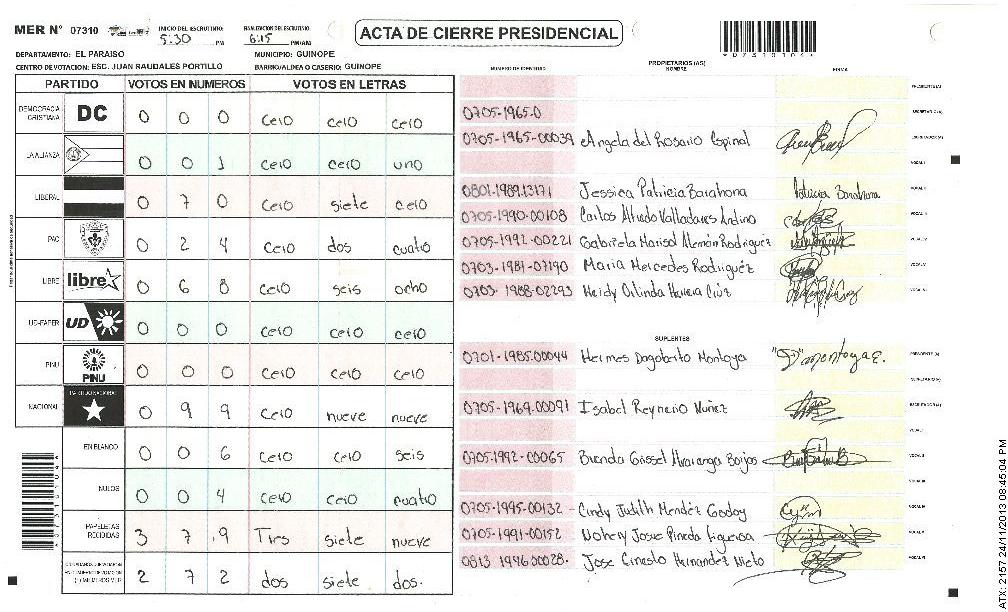 MER N° 07310 INICIO DEL ESCRUTINIO 5:30 PM FINALIZACION DEL ESCRUTINIO 6:15 PM/AM
ACTA DE CIERRE PRESIDENCIAL
DEPARTAMENTO: EL PARAISO MUNICIPIO: GUINOPE
CENTRO DE VOTACION: ESC. JUAN RAUDALES PORTILLO BARRIO/ALDEA O CASERIO: GUINOPE
PARTIDO VOTOS EN NUMEROS VOTOS EN LETRAS
DEMOCRACIA CRISTIANA DC 0 0 0 cero cero cero
LA ALIANZA 0 0 1 cero cero uno
LIBERAL 0 7 0 cero siete cero
PAC 0 2 4 cero dos cuatro
LIBRE libre 0 6 8 cero seis ocho
UD-FAPER UD 0 0 0 cero cero cero
PINU PINU 0 0 0 cero cero cero
NACIONAL PARTIDO NACIONAL 0 9 9 cero nueve nueve
EN BLANCO 0 0 6 cero cero seis
NULOS 0 0 4 cero cero cuatro
PAPELETAS RECIBIDAS 3 7 9 Tres siete nueve
2 7 2 dos siete dos.
NUMERO DE IDENTIDAD PROPIETARIOS (AS) NOMBRE FIRMA
PRESIDENTE (A)
0705-1965-0 SECRETARIO (A)
0705-1965-00039 Angela del Rosario Espinal ESCRUTADOR (A)
VOCAL I
0801-1989.13171 Jessica Patricia Barahona Patricia Barahona VOCAL II
0705-1990-00108 Carlos Alfredo Valladares Andino VOCAL III
0705-1992-00221 Gabriela Marisol Alemán Rodriguez VOCAL IV
0703-1981-07190 Maria Mercedes Rodriguéz VOCAL V
0703-1988-02293 Heidy Orlinda Herrera Crúz VOCAL VI
SUPLENTES
0701-1985.00044 Hermes Dagoberto Montoya PRESIDENTE (A)
SECRETARIO (A)
0705-1969-00091 Isabel Reynerio Nuñez ESCRUTADOR (A)
VOCAL I
0705-1992-00065 Brenda Grissel Alvarenga Borjas VOCAL II
VOCAL III
0705-1995-00132 - Cindy Judith Mendéz Godoy VOCAL IV
0705-1991-00152 Nohery Josue Pineda Figueroa VOCAL V
0813 1996 00028. Jose Ernesto Hernandez Nieto VOCAL VI
ATX: 2157 24/11/2013 08:45:04 PM